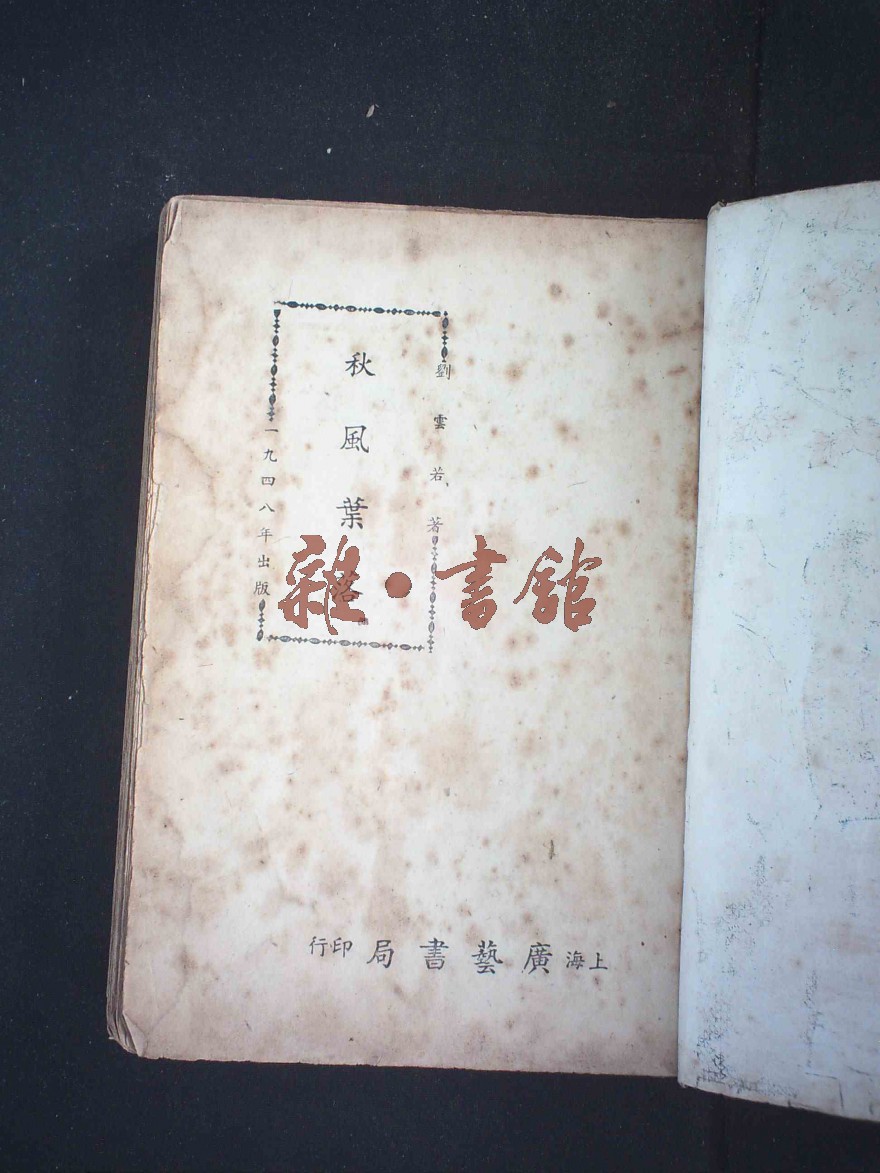 劉雲若著
秋風葉落
一九四八年出版
上海廣藝書局印行
雜·書館